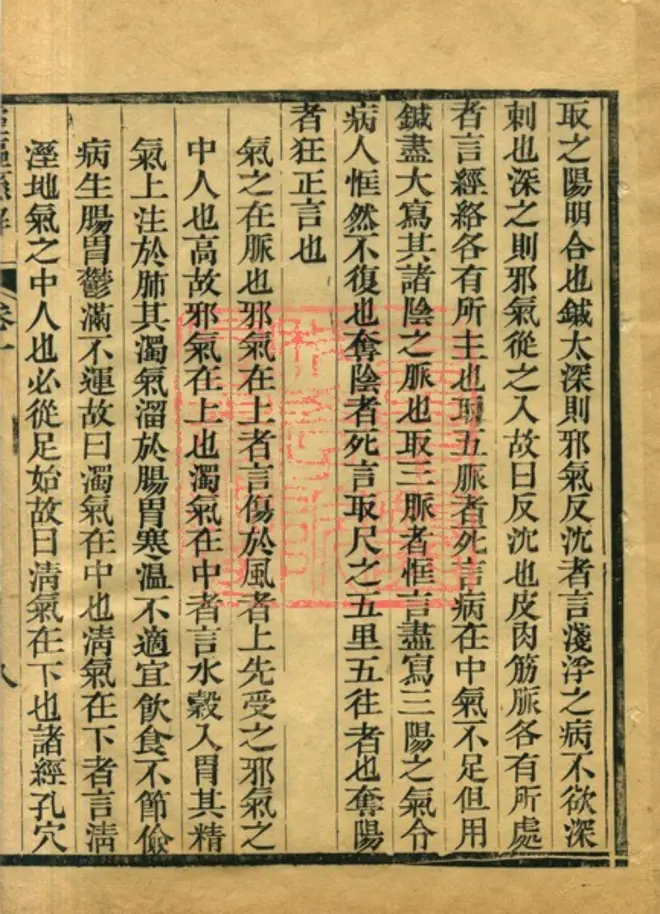 取之陽明合也鍼太深則邪氣反沈者言淺浮之病不欲深
刺也深之則邪氣從之入故曰反沈也皮肉筋脈各有所處
者言經絡各有所主也取五脈者死言病在中氣不足但用
鍼盡大寫其諸陰之脈也取三脈者恇言盡寫三陽之氣令
病人恇然不復也奪陰者死言取尺之五里五往者也奪陽
者狂正言也
氣之在脈也邪氣在上者言傷於風者上先受之邪氣之
中人也高故邪氣在上也濁氣在中者言水穀入胃其精
氣上注於肺其濁氣溜於腸胃寒溫不適宜飲食不節儉
病生腸胃鬱滿不運故曰濁氣在中也淸氣在下者言淸
溼地氣之中人也必從足始故曰淸氣在下也諸經孔穴
卷一
八